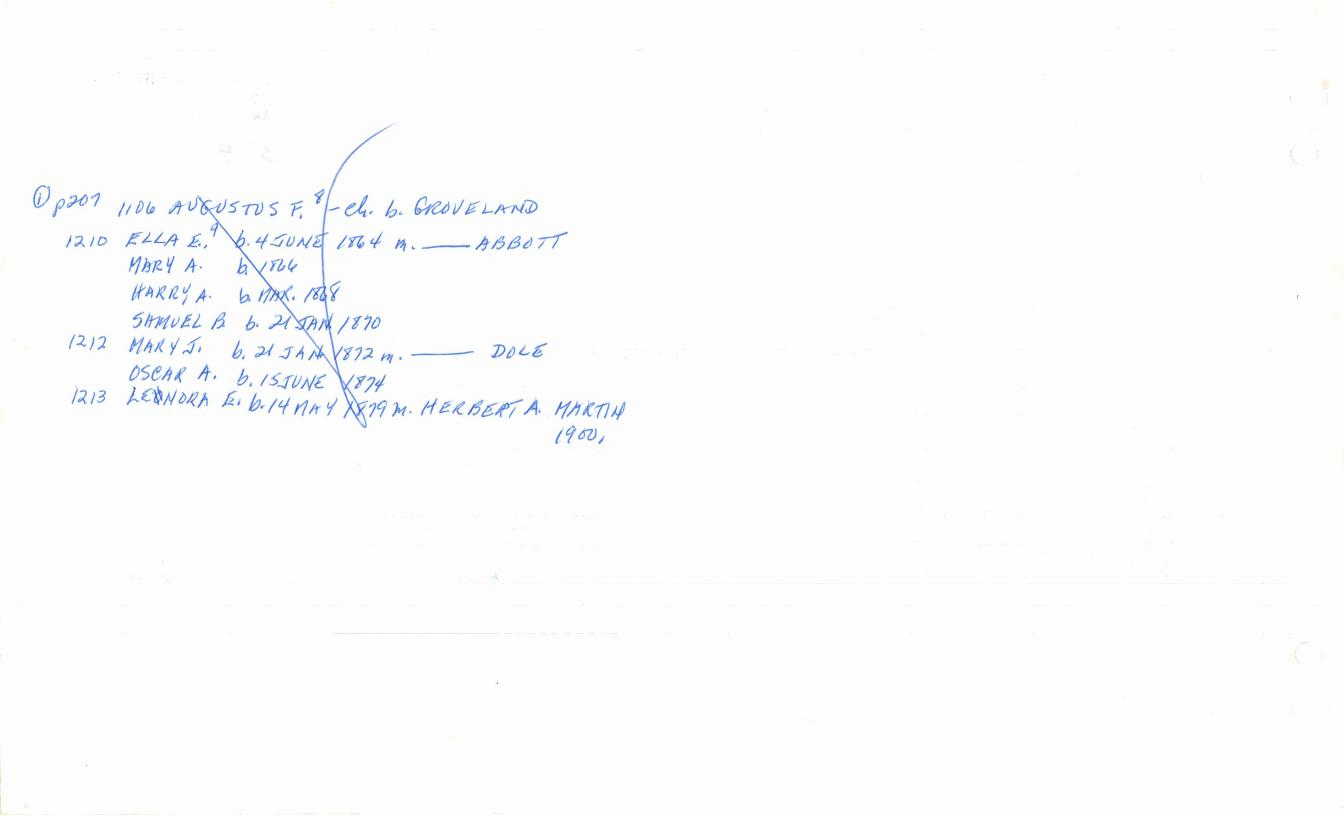 ① p207 1106 AUGUSTUS F.⁸ - ch. b. GROVELAND
1210 ELLA E.,⁹ b. 4 JUNE 1864 m. —— ABBOTT
MARY A. b. 1866
HARRY A. b. MAR. 1868
SAMUEL B. b. 21 JAN 1870
1212 MARY J. b. 21 JAN 1872 m. —— DOLE
OSCAR A. b. 15 JUNE 1874
1213 LEONORA E. b. 14 MAY 1879 m. HERBERT A. MARTIN
1900,